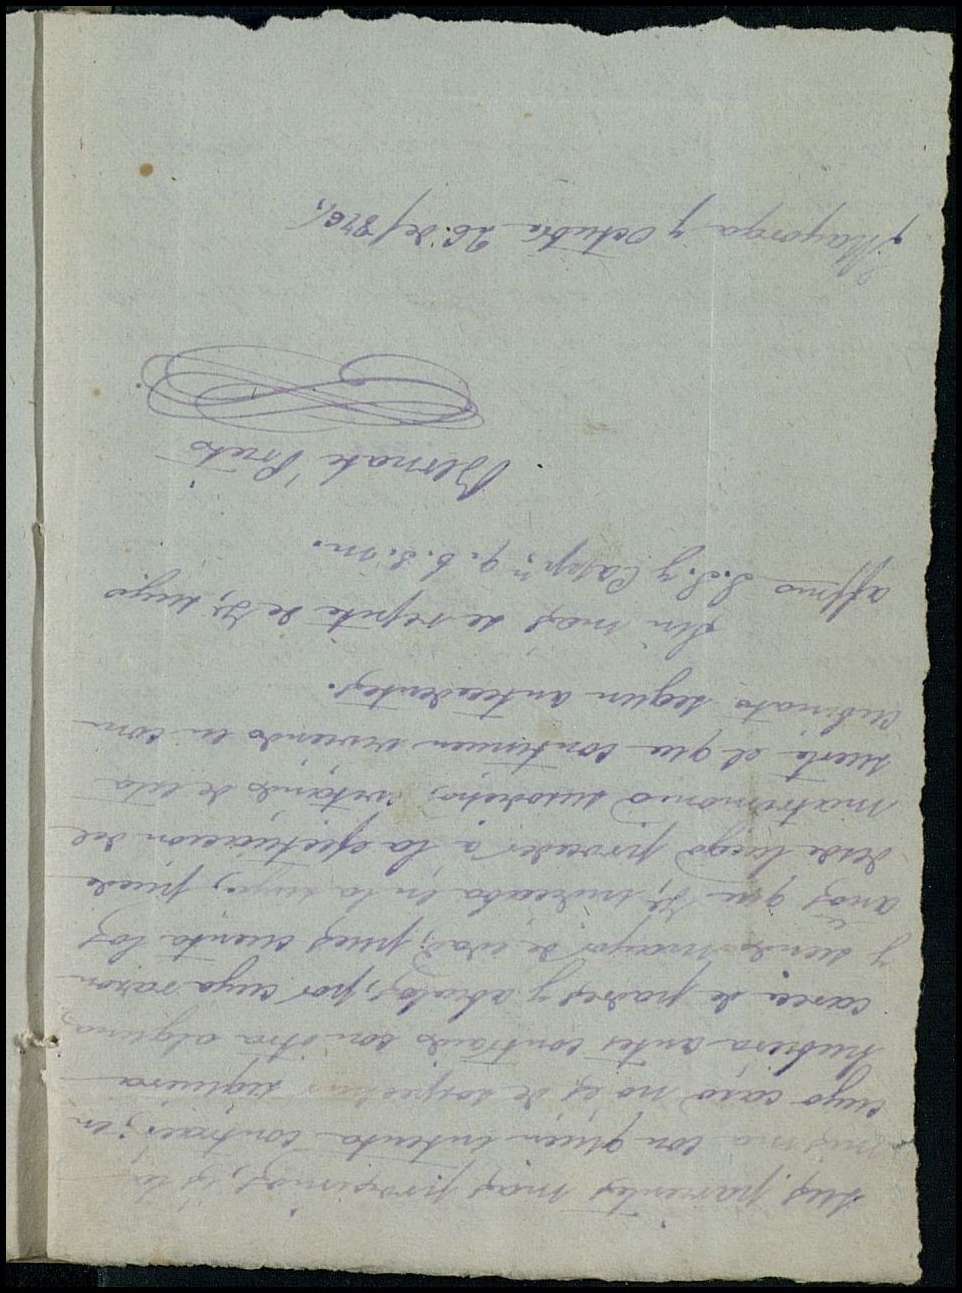 sus parientes mas proximos, y la
misma con quien intenta contraer; en
cuyo caso no es de sospechar siquiera
hubiera antes contraido con otra alguna,
carece de padres y abuelos, por cuya razon
y siendo mayor de edad, pues cuenta los
años que V. indicaba en la suya, puede
desde luego proceder á la efectuacion del
matrimonio susodicho, evitando de esta
suerte el que continuen viviendo en con
cubinato segun antecedentes.
Sin mas se repite de V. suyo
affmo S.S. y Capp.n q. b. s. m.
Bernabe Prieto
Mayorga y Octubre 26 de /876/.